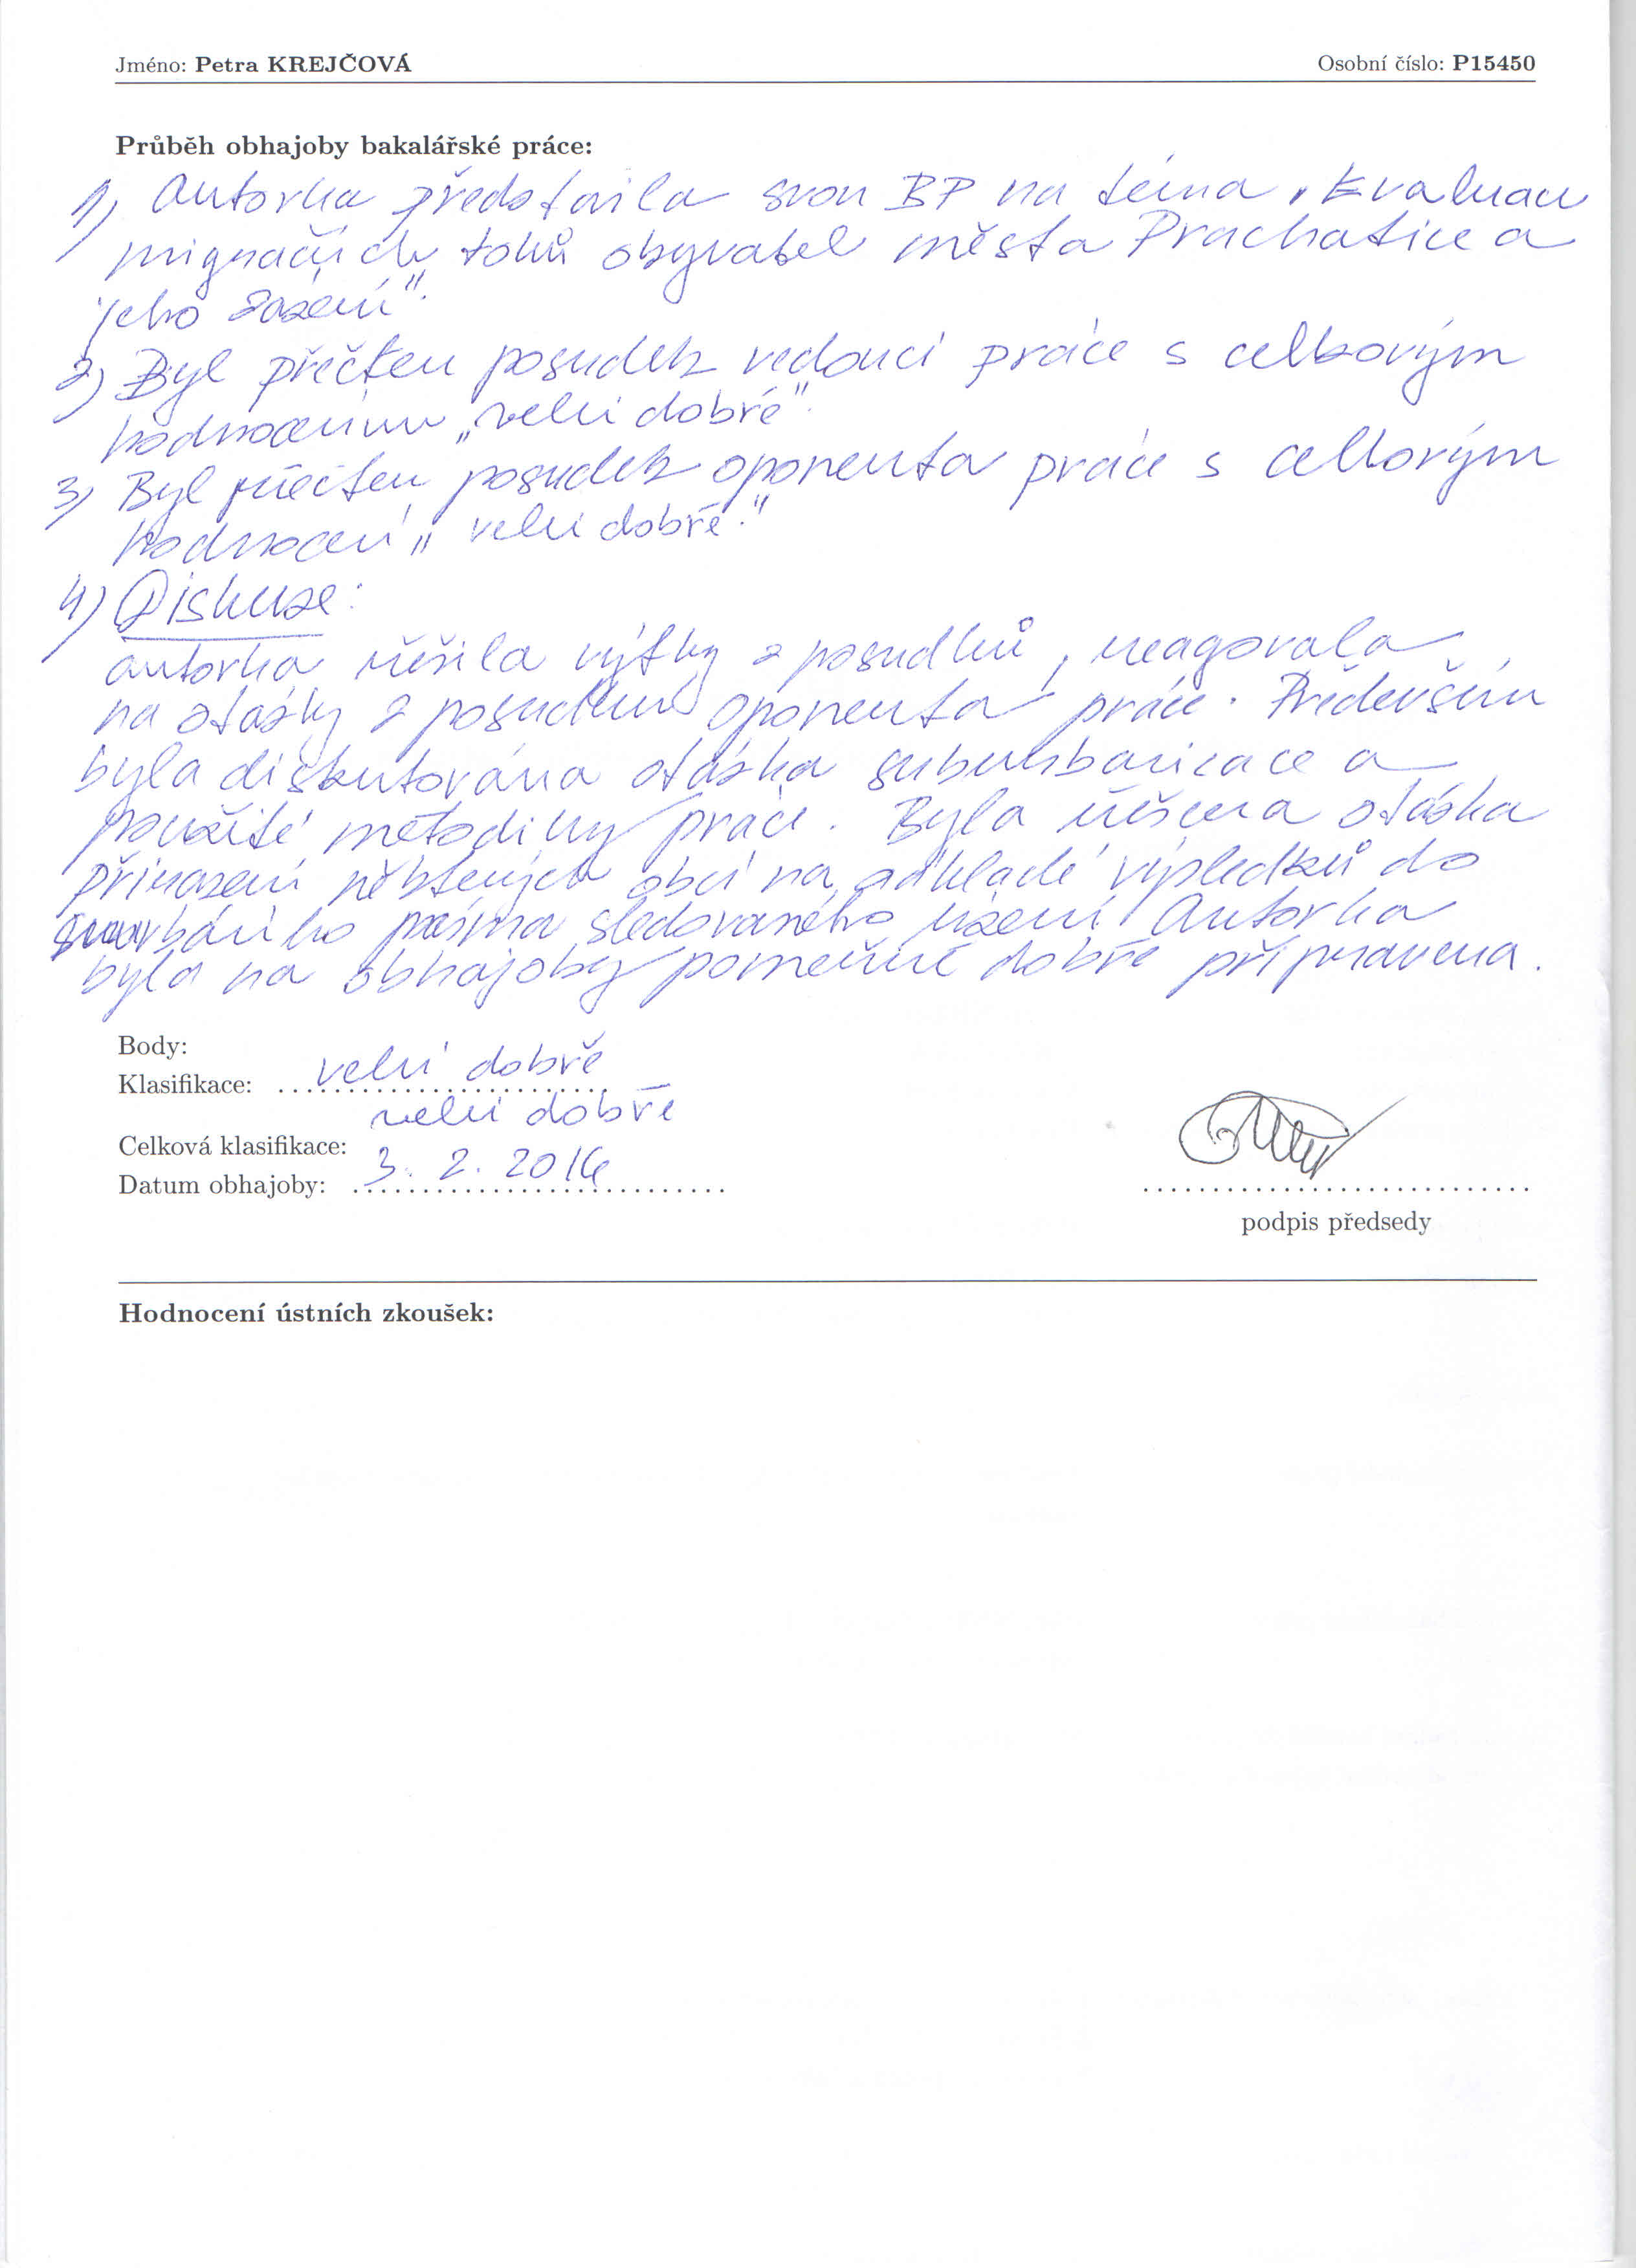 Jméno: Petra KREJČOVÁ Osobní číslo: P15450
Průběh obhajoby bakalářské práce:
1) Autorka představila svou BP na téma „Evaluace
migračních toků obyvatel města Prachatice a
jeho zázemí".
2) Byl přečten posudek vedoucí práce s celkovým
hodnocením „velmi dobře".
3) Byl přečten posudek oponenta práce s celkovým
hodnocení „velmi dobře."
4) Diskuze:
autorka řešila výtky z posudků, reagovala
na otázky z posudku oponenta práce. Především
byla diskutována otázka suburbanizace a
použité metodiky práce. Byla řešena otázka
přiřazení některých obcí na základě výsledků do
pásma sledovaného území. Autorka
byla na obhajoby poměrně dobře připravena.
Body:
Klasifikace: velmi dobře
Celková klasifikace: velmi dobře
Datum obhajoby: 3. 2. 2016
podpis předsedy
Hodnocení ústních zkoušek: